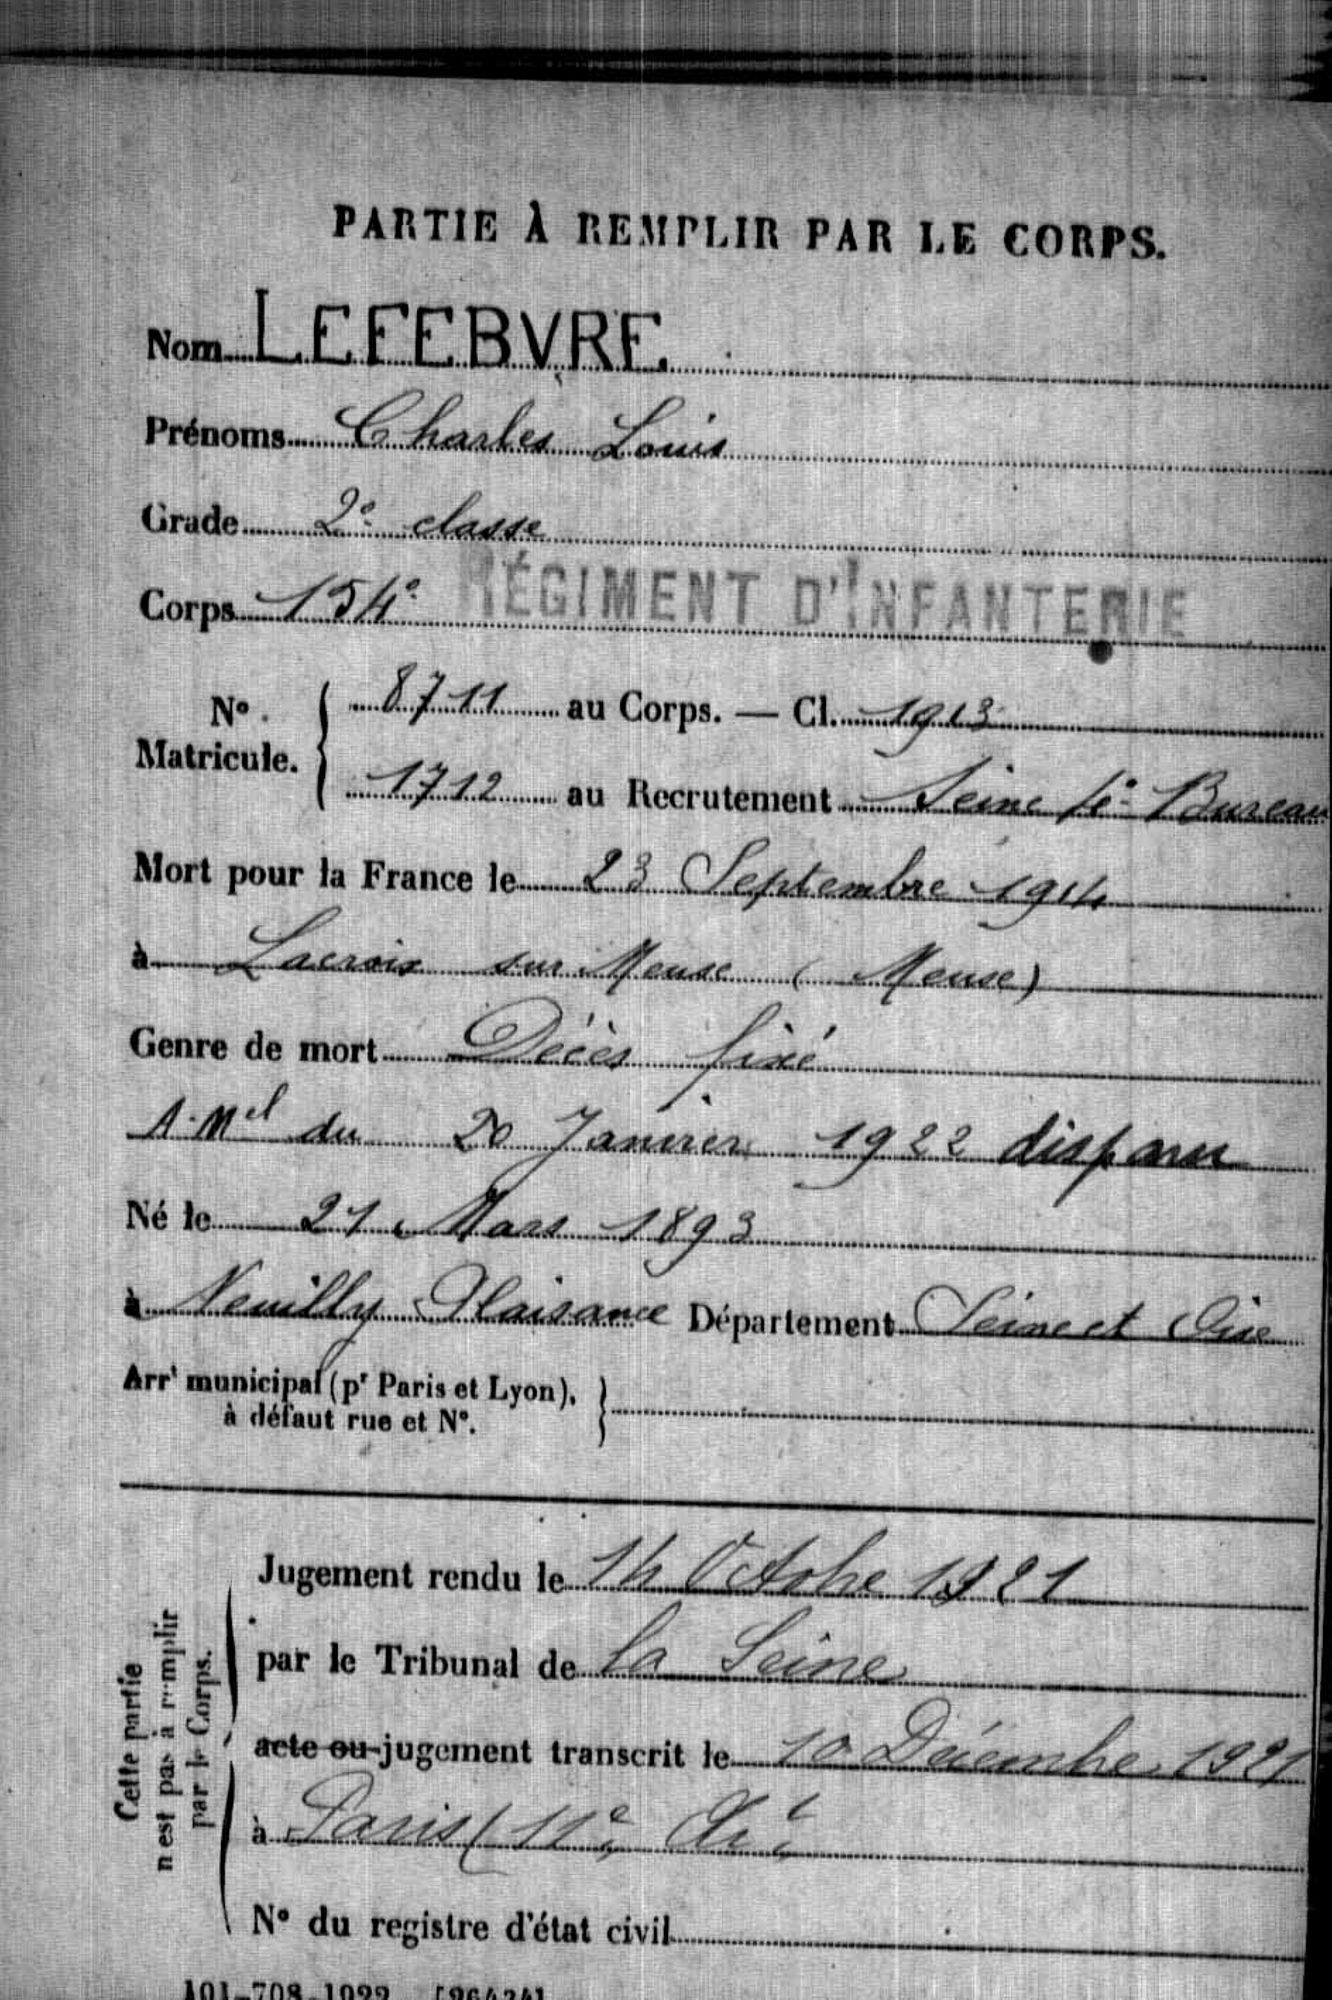 PARTIE À REMPLIR PAR LE CORPS.
Nom LEFEBVRE.
Prénoms Charles Louis
Grade 2e classe
Corps 154e RÉGIMENT D'INFANTERIE
No Matricule. { 8711 au Corps. — Cl. 1913
1712 au Recrutement Seine Bureau
Mort pour la France le 23 Septembre 1914
à Lacroix sur Meuse (Meuse)
Genre de mort Décès fixé
A. Mel du 20 Janvier 1922 disparu
Né le 21 Mars 1893
à Neuilly Plaisance Département Seine et Oise
Arrt municipal (pr Paris et Lyon), }
à défaut rue et No.
Cette partie n'est pas à remplir par le Corps.
Jugement rendu le 14 Octobre 1921
par le Tribunal de la Seine
acte ou jugement transcrit le 10 Décembre 1921
à Paris (11e
No du registre d'état civil
101-708-1922 [26434]